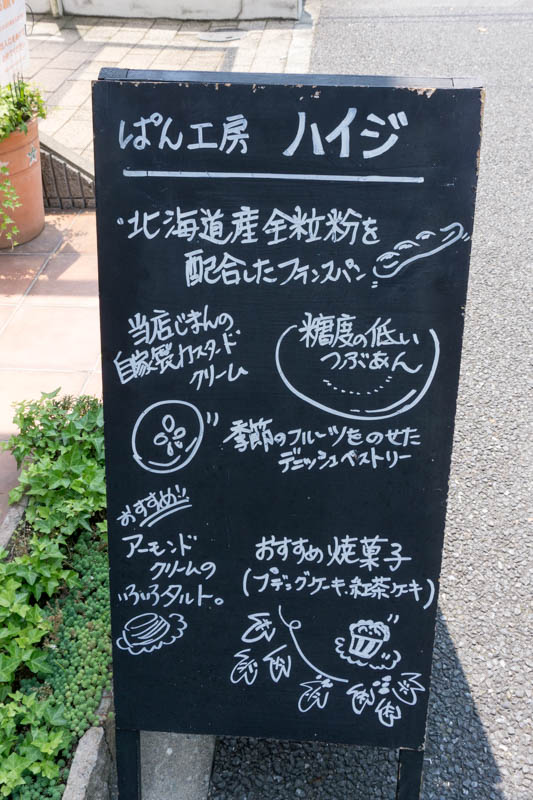 ぱん工房 ハイジ
・北海道産全粒粉を
配合したフランスパン
当店じまんの
自家製カスタード
クリーム
糖度の低い
つぶあん
季節のフルーツをのせた
デニッシュペストリー
おすすめ!!
アーモンド
クリームの
いろいろタルト。
おすすめ焼菓子
(プディングケーキ.紅茶ケーキ)